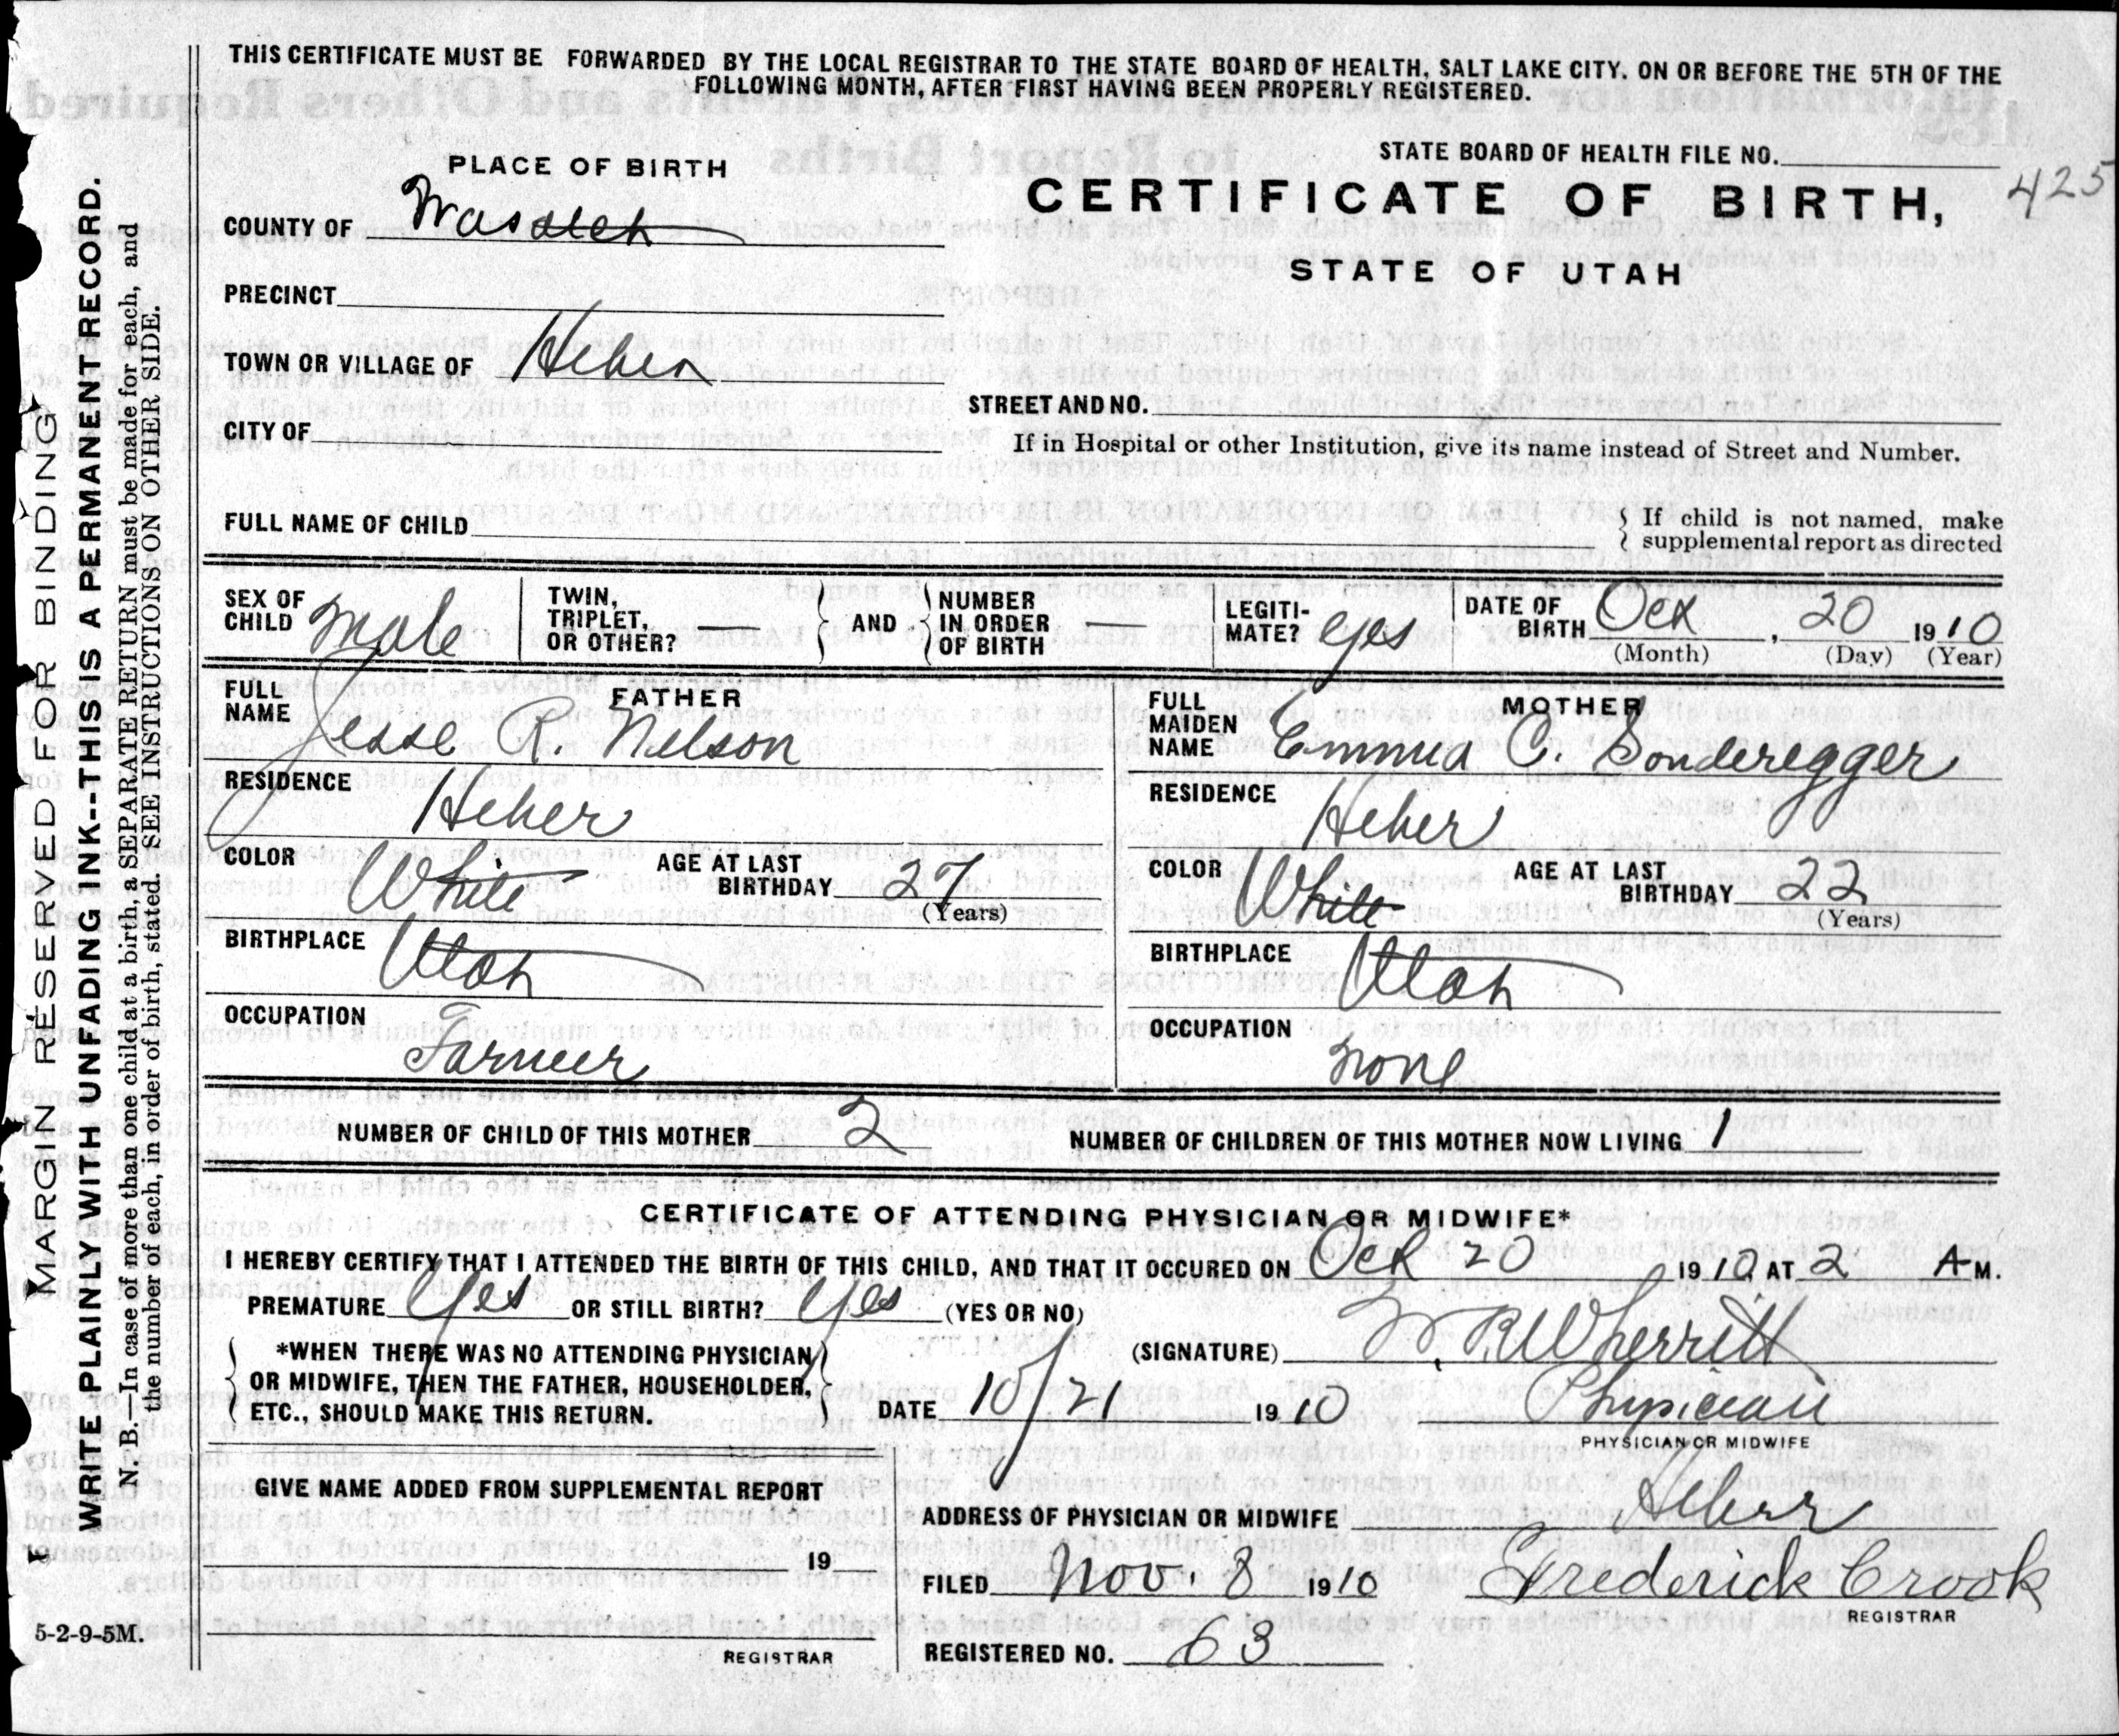 THIS CERTIFICATE MUST BE FORWARDED BY THE LOCAL REGISTRAR TO THE STATE BOARD OF HEALTH, SALT LAKE CITY. ON OR BEFORE THE 5TH OF THE
FOLLOWING MONTH, AFTER FIRST HAVING BEEN PROPERLY REGISTERED.
STATE BOARD OF HEALTH FILE NO.
425
CERTIFICATE OF BIRTH,
STATE OF UTAH
PLACE OF BIRTH
COUNTY OF Wasatch
PRECINCT
TOWN OR VILLAGE OF Heber
CITY OF
STREET AND NO.
If in Hospital or other Institution, give its name instead of Street and Number.
FULL NAME OF CHILD
{ If child is not named, make
supplemental report as directed
SEX OF
CHILD male
TWIN,
TRIPLET,
OR OTHER? —
} AND {
NUMBER
IN ORDER
OF BIRTH —
LEGITI-
MATE? yes
DATE OF
BIRTH Oct, 20 1910
(Month) (Day) (Year)
FATHER
FULL
NAME Jesse R. Nelson
RESIDENCE Heber
COLOR White
AGE AT LAST
BIRTHDAY 27
(Years)
BIRTHPLACE Utah
OCCUPATION Farmer
MOTHER
FULL
MAIDEN
NAME Emma C. Sonderegger
RESIDENCE Heber
COLOR White
AGE AT LAST
BIRTHDAY 22
(Years)
BIRTHPLACE Utah
OCCUPATION none
NUMBER OF CHILD OF THIS MOTHER 2 NUMBER OF CHILDREN OF THIS MOTHER NOW LIVING 1
CERTIFICATE OF ATTENDING PHYSICIAN OR MIDWIFE*
I HEREBY CERTIFY THAT I ATTENDED THE BIRTH OF THIS CHILD, AND THAT IT OCCURED ON Oct 20 1910 AT 2 A M.
PREMATURE Yes OR STILL BIRTH? Yes (YES OR NO)
*WHEN THERE WAS NO ATTENDING PHYSICIAN
OR MIDWIFE, THEN THE FATHER, HOUSEHOLDER,
ETC., SHOULD MAKE THIS RETURN.
(SIGNATURE) W. R. Wherritt
DATE 10/21 1910 Physician
PHYSICIAN OR MIDWIFE
GIVE NAME ADDED FROM SUPPLEMENTAL REPORT
19
REGISTRAR
ADDRESS OF PHYSICIAN OR MIDWIFE Heber
FILED Nov. 8 1910 Frederick Crook
REGISTRAR
REGISTERED NO. 63
MARGIN RESERVED FOR BINDING
WRITE PLAINLY WITH UNFADING INK--THIS IS A PERMANENT RECORD.
N. B.—In case of more than one child at a birth, a SEPARATE RETURN must be made for each, and
the number of each, in order of birth, stated. SEE INSTRUCTIONS ON OTHER SIDE.
5-2-9-5M.